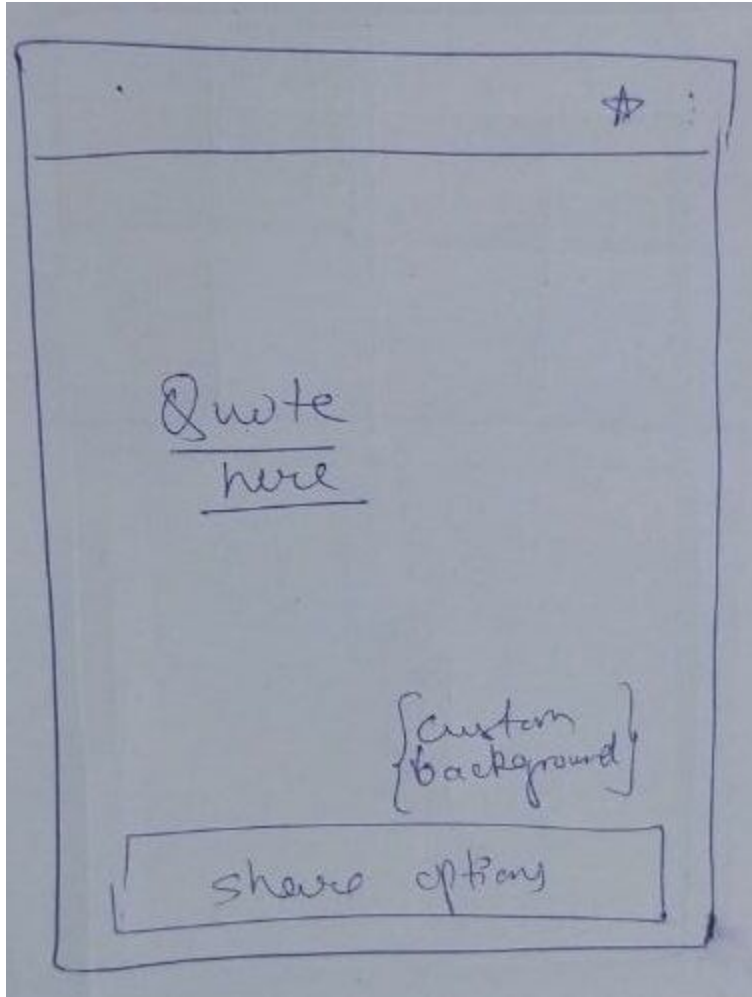 Quote
here
{custom
background}
share options